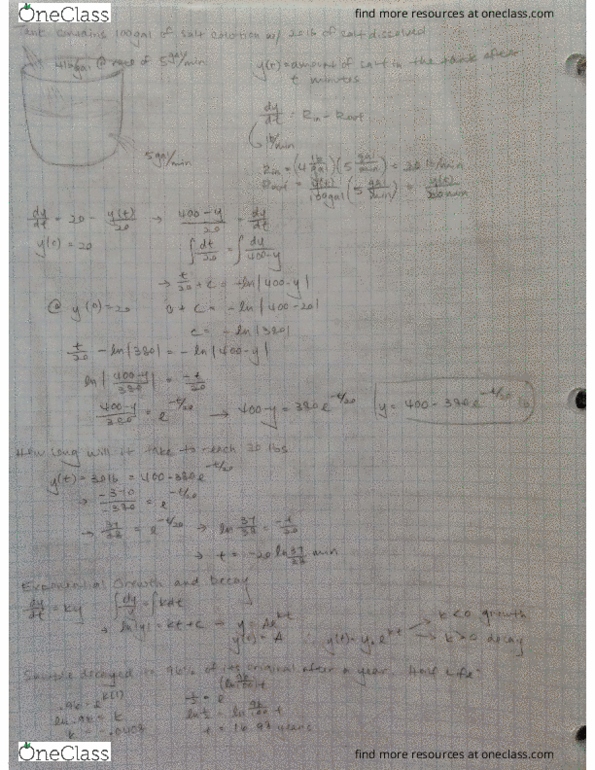 OneClass
find more resources at oneclass.com
Tank contains 100gal of salt solution w/ 20lb of salt dissolved
4lb/gal @ rate of 5 gal/min
y(t) = amount of salt in the tank after
t minutes
dy/dt = Rin - Rout
lb/min
5gal/min
Rin = (4 lb/gal)(5 gal/min) = 20 lb/min
Rout = y(t)/100gal (5 gal/min) = y(t)/20 min
dy/dt = 20 - y(t)/20 → (400-y)/20 = dy/dt
y(0) = 20
∫ dt/20 = ∫ dy/(400-y)
→ t/20 + c = -ln|400-y|
@ y(0)=20 0 + c = -ln|400-20|
c = -ln|380|
t/20 - ln|380| = -ln|400-y|
ln|(400-y)/380| = -t/20
(400-y)/380 = e^(-t/20) → 400-y = 380e^(-t/20) y = 400 - 380e^(-t/20) lb
How long will it take to reach 30 lbs
y(t) = 30lb = 400-380e^(-t/20)
→ -370/-380 = e^(-t/20)
→ 37/38 = e^(-t/20) → ln 37/38 = -t/20
→ t = -20 ln 37/38 min
Exponential Growth and Decay
dy/dt = ky ∫ dy/y = ∫ kdt
→ ln|y| = kt + c → y = Ae^(kt)
y(0) = A ∴ y(t) = y₀e^(kt)
k<0 growth
k>0 decay
Sample decayed to 96% of its original after a year. Half life?
.96 = e^(k(1))
ln .96 = k
k = -.0408
1/2 = e^((ln 96/100)t)
ln 1/2 = ln 96/100 t
t = 16.98 years
OneClass
find more resources at oneclass.com